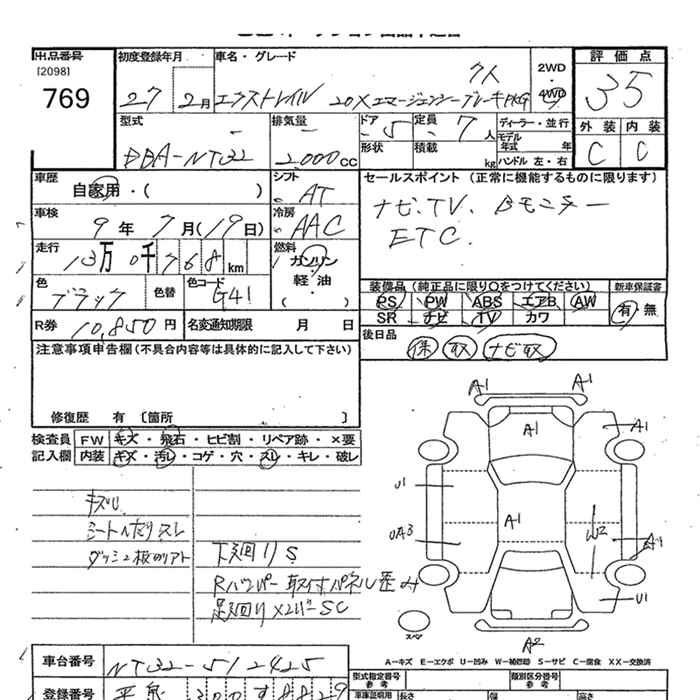 出品番号
[2098]
769
初度登録年月
27 2月
車名・グレード
エクストレイル 20X エマージェンシーブレーキPKG
7人
2WD・4WD
評価点
35
外装 内装
C C
型式
DBA-NT32
排気量
2000cc
ドア
5
定員
7人
形状
積載
kg
ディーラー・並行
モデル年式 年
ハンドル 左・右
車歴
自家用・( )
シフト
AT
車検
9年7月(19日)
冷房
AAC
走行
13万0千768km
燃料
ガソリン
軽油
( )
色
ブラック
色替
色コード
G41
R券
10,850円
名変通知期限 月 日
セールスポイント(正常に機能するものに限ります)
ナビ.TV. Bモニター
ETC.
装備品(純正品に限り○をつけてください)
新車保証書
PS PW ABS エアB AW
SR ナビ TV カワ
有・無
後日品
保 取 ナビ取
注意事項申告欄(不具合内容等は具体的に記入して下さい)
修復歴 有 〔箇所 〕
検査員
記入欄
FW キズ・飛石・ヒビ割・リペア跡・×要
内装 キズ・汚レ・コゲ・穴・スレ・キレ・破レ
下廻りS
Rバンパー取付パネル歪み
足廻り×メンバーSC
A1
A1
A1
A1
U1
A1
UA3
W2
U1
A2
スペア
A-キズ E-エクボ U-凹み W-補修跡 S-サビ C-腐食 XX-交換済
車台番号
NT32-512425
登録番号
型式指定番号
参考
類別区分番号
参考
車庫証明用
長さ
幅
高さ